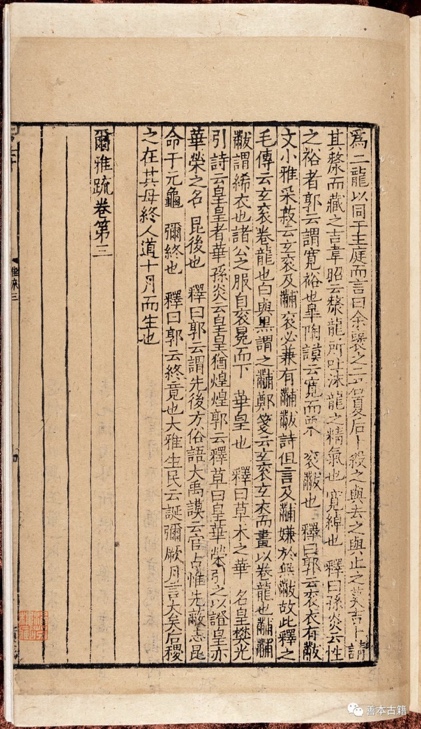 爲二龍以同于王庭而言曰余襃之二君夏后卜殺之與去之與止之莫吉卜請
其漦而藏之吉韋昭云漦龍所吐沫龍之精氣也　寬綽也　釋曰孫炎云性
之裕者郭云謂寬裕也皐陶謨云寬而栗　衮黻也　釋曰郭云衮衣有黻
文小雅采菽云玄衮及黼衮必兼有黼黻詩但言及黼嫌於無黻故此釋之
毛傳云玄衮卷龍也白與黑謂之黼鄭箋云玄衮玄衣而畫以卷龍也黼黼
黻謂絺衣也諸公之服自衮冕而下　華皇也　釋曰草木之華一名皇樊光
引詩云皇皇者華孫炎云皇皇猶煌煌郭云釋草曰葟華榮引之以證皇亦
華榮之名　昆後也　釋曰郭云謂先後方俗語大禹謨云官占惟先蔽志昆
命于元龜　彌終也　釋曰郭云終竟也大雅生民云誕彌厥月言大矣后稷
之在其母終人道十月而生也
爾雅疏卷第三
善本古籍